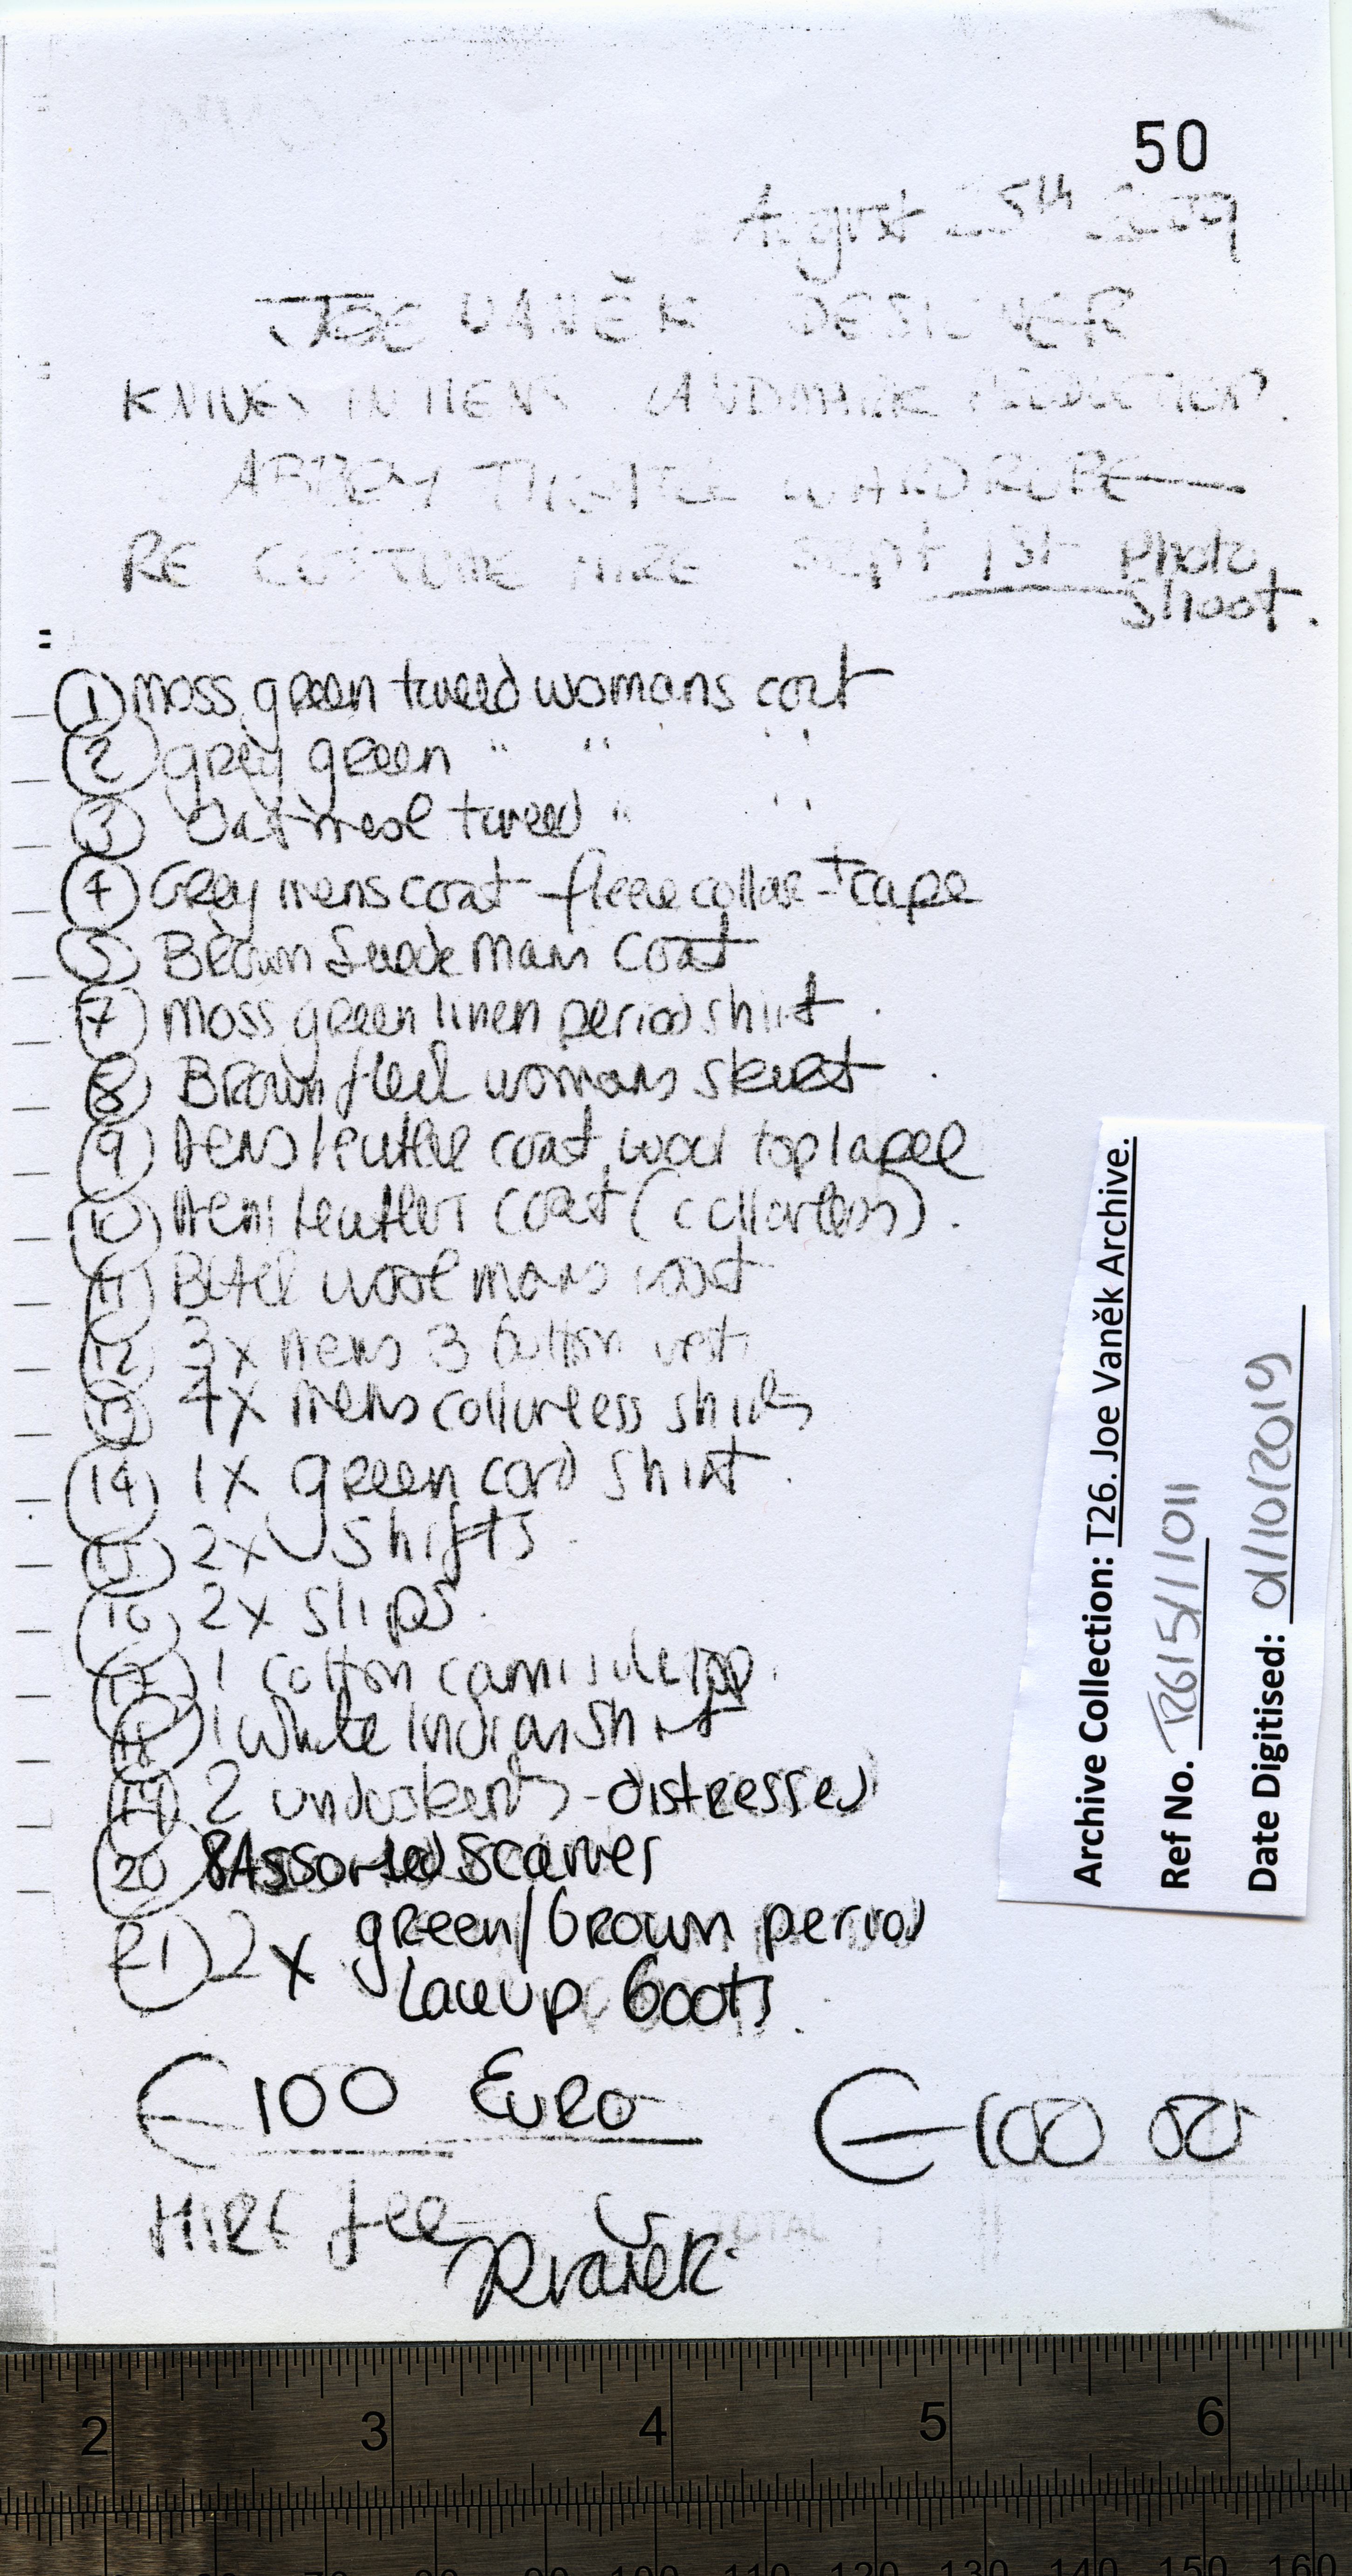 50
August 25th 2009
JOE VANĚK DESIGNER
KNIVES IN HENS LANDMARK PRODUCTION.
ABBEY THEATRE WARDROBE
RE COSTUME HIRE Sept 1st Photo
Shoot.
① moss green tweed womans coat
② grey green " " " "
③ Oatmeal tweed " "
④ Grey mens coat - fleece collar + cape
⑤ Brown Suede Mans Coat
⑦ Moss green linen period shirt.
⑧ Brown womans skirt.
⑨ Mens leather coat, wool top lapel
⑩ Mens leather coat (collarless).
⑪ wool mans coat
⑫ 3x mens 3 button vest
⑬ 4x mens collarless shirts
⑭ 1x green cord shirt.
⑮ 2x shifts.
⑯ 2x slips.
⑰ 1 cotton camisole top.
⑱ 1 white Indian Shirt
⑲ 2 underskirts - distressed
⑳ 8 Assorted Scarves
㉑ 2x green/brown period
Laceup boots.
€100 Euro €100 00
HIRE fee
TOTAL
JRVaněk
Archive Collection: T26. Joe Vaněk Archive.
Ref No. T26/5/1/1011
Date Digitised: 01/10/2019
2 3 4 5 6